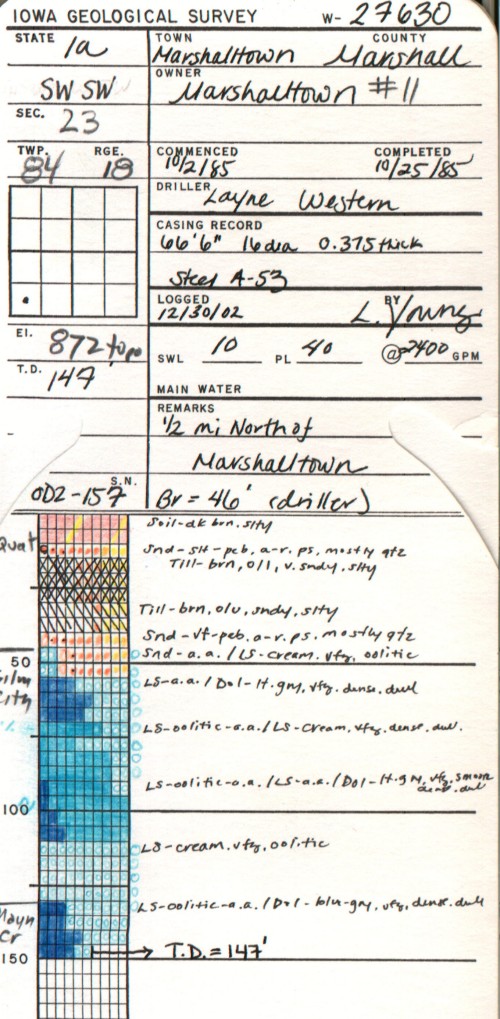 IOWA GEOLOGICAL SURVEY W- 27630
STATE Ia
TOWN COUNTY
Marshalltown Marshall
SW SW
OWNER
Marshalltown #11
SEC. 23
TWP. RGE.
84 18
COMMENCED COMPLETED
10/2/85 10/25/85
DRILLER Layne Western
CASING RECORD
66'6" 16 dia 0.375 thick
Steel A-53
LOGGED BY
12/30/02 L. Young
El. 872 topo
SWL 10 PL 40 @ 2400 GPM
T.D. 147
MAIN WATER
REMARKS
1/2 mi North of
Marshalltown
S.N.
OD2-157 Br = 46' (driller)
Soil-dk brn, slty
Quat
Snd-slt-peb, a-r, ps, mostly qtz
Till-brn, o/l, v. sndy, slty
Till-brn, o/u, sndy, slty
Snd-vf-peb, a-r, ps, mostly qtz
Snd-a.a./LS-cream, vfg, oolitic
50
ilm
ity
LS-a.a./Dol-lt.gry, vfg, dense, dull
LS-oolitic-a.a./LS-cream, vfg, dense, dull.
LS-oolitic-a.a./LS-a.a./Dol-lt.gry, vfg,
dense, dull
100
LS-cream, vfg, oolitic
LS-oolitic-a.a./Dol-blu-gry, vfg, dense, dull
Mayn
Cr
150
T.D. = 147'